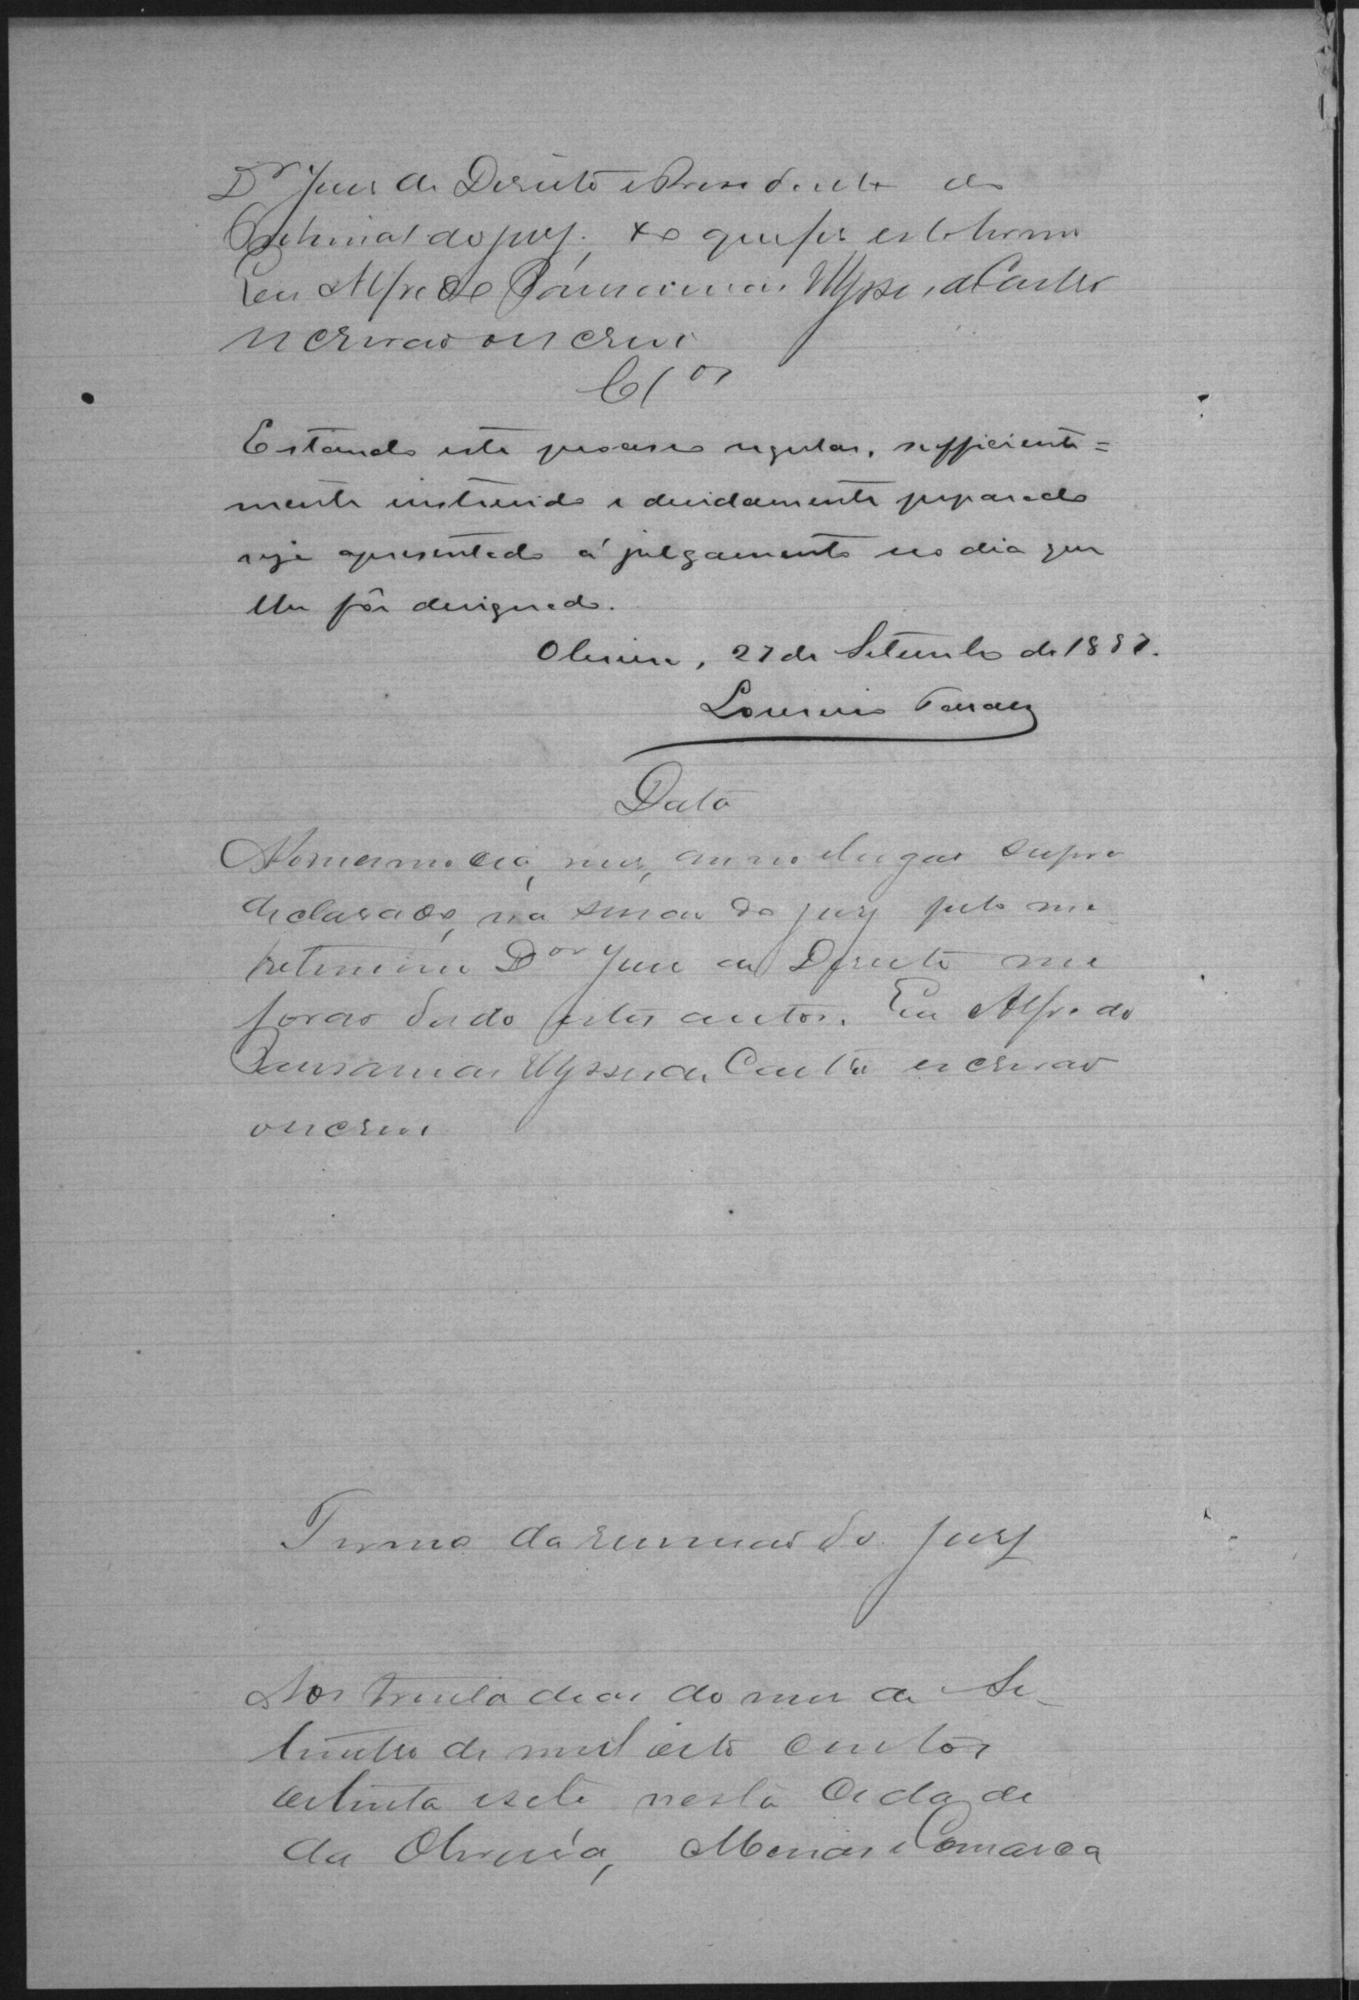 Dr Juiz de Direito e Presidente do
Tribunal do jury. do que fiz este termo
Eu Alfredo Pausanias Ulysses de Castro
escrivão o escrevi
Clos
Estando este processo regular, sufficiente=
mente instruido e devidamente preparado
seja apresentado á julgamento no dia que
lhe fôr designado.
Oliveira, 27 de Setembro de 1887.
Lourenço
Data
No mesmo dia, mez, anno e lugar supra
declarado, na sessão do jury pelo me
retissimo Dor Juiz de Direito me
forão dado estes autos. Eu Alfredo
Pausanias Ulysses de Castro escrivão
o escrevi
Termo da reunião do jury
Aos trinta dias do mez de Se-
tembro de mil oito centos
oitenta e sete nesta Cidade
da Oliveira, Minas e Comarca